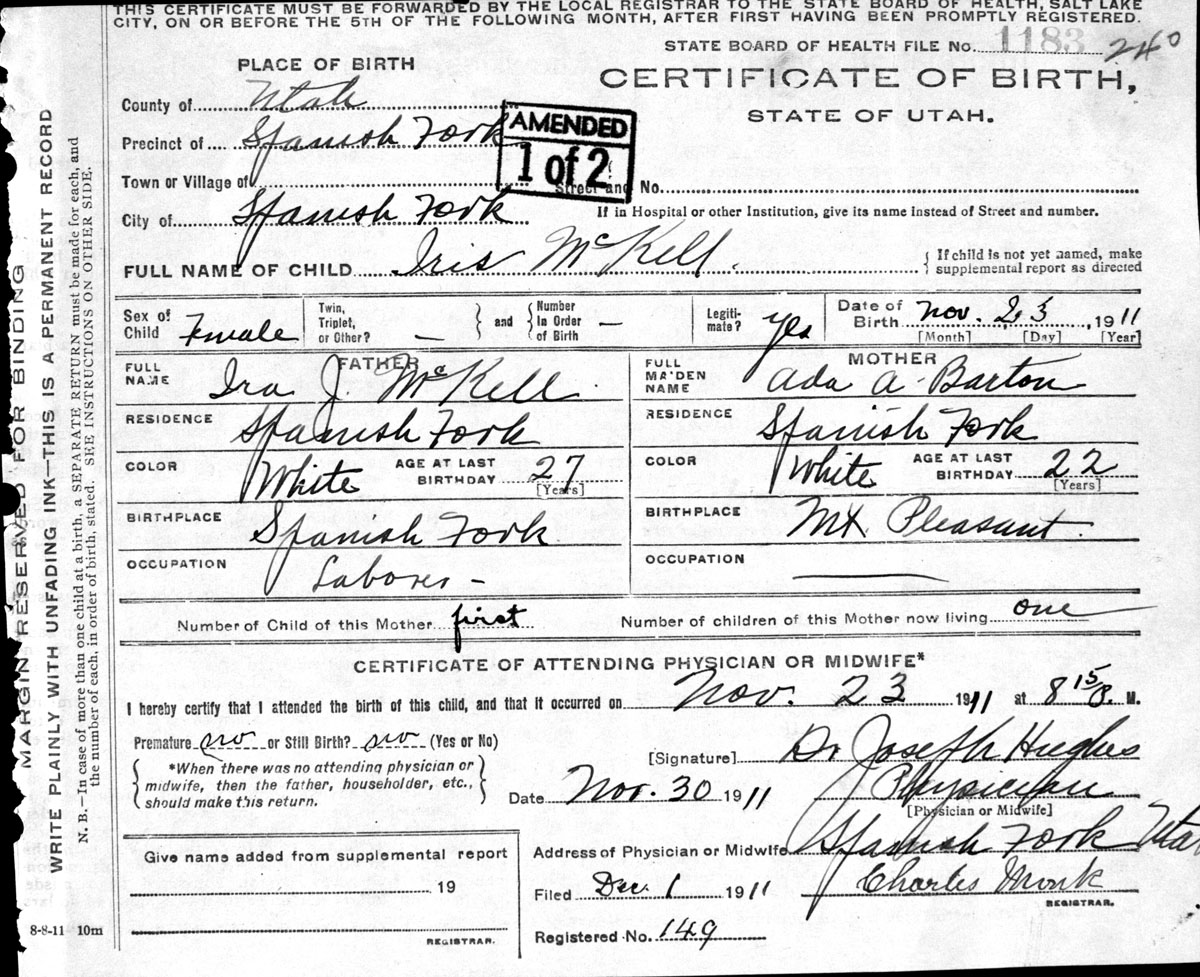 THIS CERTIFICATE MUST BE FORWARDED BY THE LOCAL REGISTRAR TO THE STATE BOARD OF HEALTH, SALT LAKE
CITY, ON OR BEFORE THE 5TH OF THE FOLLOWING MONTH, AFTER FIRST HAVING BEEN PROMPTLY REGISTERED.
STATE BOARD OF HEALTH FILE No. 1183 240
PLACE OF BIRTH
CERTIFICATE OF BIRTH,
STATE OF UTAH.
County of Utah
Precinct of Spanish Fork
AMENDED
1 of 2
Town or Village of
Street and No.
City of Spanish Fork
If in Hospital or other Institution, give its name instead of Street and number.
FULL NAME OF CHILD Iris McKell
If child is not yet named, make
supplemental report as directed
Sex of Child Female
Twin, Triplet, or Other? — and Number In Order of Birth —
Legitimate? yes
Date of Birth Nov. 23, 1911
[Month] [Day] [Year]
FATHER
FULL NAME Ira J. McKell
RESIDENCE Spanish Fork
COLOR White AGE AT LAST BIRTHDAY 27
[Years]
BIRTHPLACE Spanish Fork
OCCUPATION Laborer -
MOTHER
FULL MAIDEN NAME Ada A. Barton
RESIDENCE Spanish Fork
COLOR White AGE AT LAST BIRTHDAY 22
[Years]
BIRTHPLACE Mt. Pleasant
OCCUPATION —
Number of Child of this Mother first
Number of children of this Mother now living one
CERTIFICATE OF ATTENDING PHYSICIAN OR MIDWIFE*
I hereby certify that I attended the birth of this child, and that it occurred on Nov. 23 1911 at 8 15 M.
Premature no or Still Birth? no (Yes or No)
*When there was no attending physician or
midwife, then the father, householder, etc.,
should make this return.
[Signature] Dr Joseph Hughes
Date Nov. 30 1911 Physician
[Physician or Midwife]
Address of Physician or Midwife Spanish Fork Utah
Filed Dec. 1 1911 Charles Monk
REGISTRAR.
Registered No. 149
Give name added from supplemental report
19
REGISTRAR.
8-8-11 10m
MARGIN RESERVED FOR BINDING
WRITE PLAINLY WITH UNFADING INK—THIS IS A PERMANENT RECORD
N. B.—In case of more than one child at a birth, a SEPARATE RETURN must be made for each, and
the number of each, in order of birth, stated. SEE INSTRUCTIONS ON OTHER SIDE.